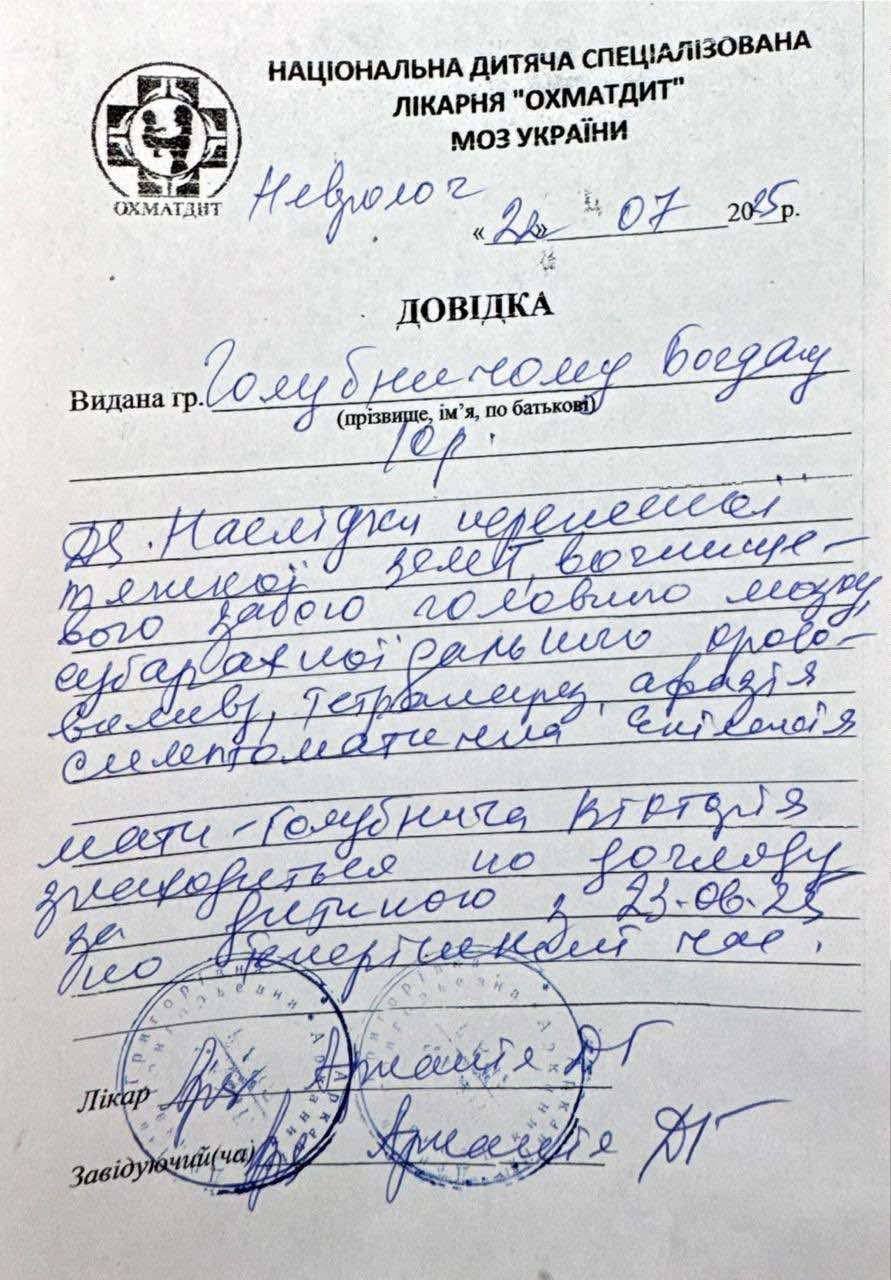 НАЦІОНАЛЬНА ДИТЯЧА СПЕЦІАЛІЗОВАНА
ЛІКАРНЯ "ОХМАТДИТ"
МОЗ УКРАЇНИ
ОХМАТДИТ
Невролог
«22» 07 2025р.
ДОВІДКА
Видана гр. Голубничому Богдану
(прізвище, ім’я, по батькові)
Юр.
ДЗ. Наслідки перенесеної
тяжкої ЗЧМТ, вогнище-
вого забою головного мозку,
субарахноїдального крово-
виливу, тетрапарез, афазія
симптоматична епілепсія
мати - Голубнича Вікторія
знаходиться по догляду
за дитиною з 23.06.25
по теперішній час.
Лікар ДГ
Завідуючий(ча) ДГ